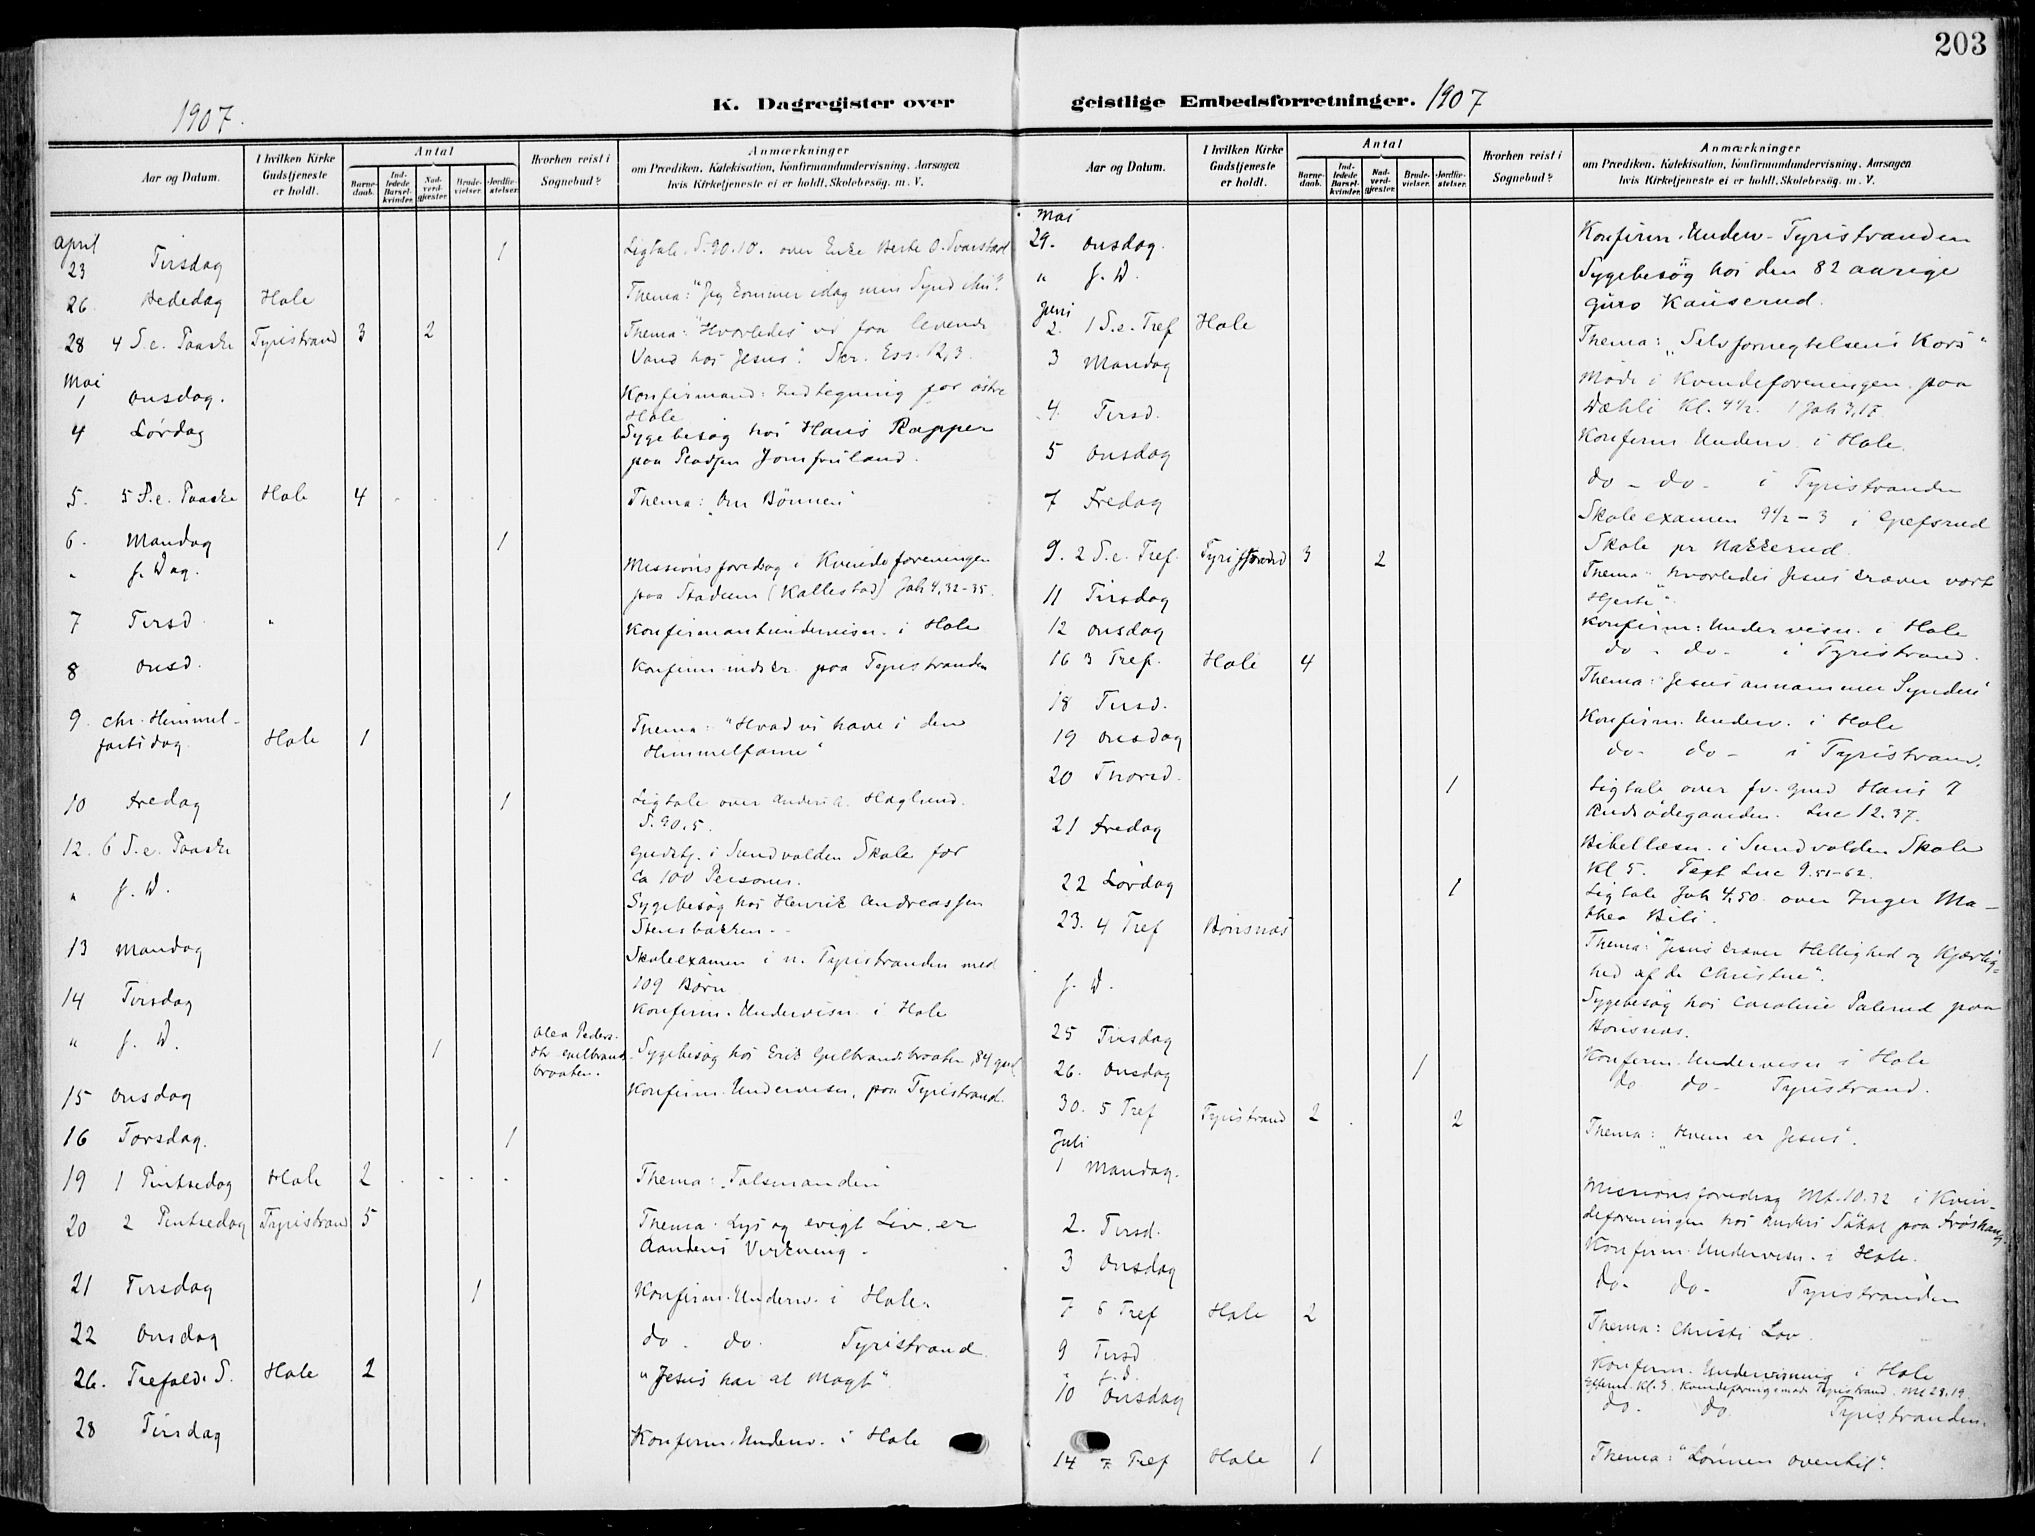 203
1907.
K. Dagregister over
Aar og Datum.
I hvilken Kirke Gudstjeneste er holdt.
Antal
Barnedaab.
Indledede Barselkvinder.
Nadverdgjester.
Brudevielser.
Jordfæstelser.
Hvorhen reist i Sognebud?
Anmærkninger
om Prædiken, Katekisation, Konfirmandundervisning, Aarsagen
hvis Kirketjeneste ei er holdt, Skolebesøg, m. V.
April
23 Tirsdag 1 Ligtale. S. 90.10. over Enke Berte O. Svarstad
26 Bededag Hole Thema: "Jeg kommer idag men Synd ihu?
28 4 S. e. Paaske Tyristrand 3 2 Thema: "Hvorledes vi faa levende
Vand hos Jesus". Skr. Ess. 12,3.
Mai
1 Onsdag. Konfirmand: Indtegning for østre
Hole
4 Lørdag Sygebesøg hos Hans Rapper
paa Pladsen Jomfruland.
5. 5 S. e. Paaske Hole 4 Thema: "Om Bønnen"
6. Mandag 1
" s. Dag. Missionsforedrag i Kvindeforeningen
paa Stadum (Kallestad) Joh 4, 32-35.
7 Tirsd. Konfirmantundervisn. i Hole
8 Onsd. Konfirm. indskr. paa Tyristranden
9. Chr. Himmel-
fartsdag. Hole 1 Thema: "Hvad vi have i den
Himmelfarne"
10 Fredag 1 Ligtale over Anders A. Haglund.
S. 90.5.
12. 6 S. e. Paaske Gudstj. i Sundvolden Skole for
ca 100 Personer.
" s. D. Sygebesøg hos Henrik Andreassen
Stensbakken.
13 Mandag Skoleexamen i n. Tyristranden med
109 Børn
14 Tirsdag Konfirm. Undervisn. i Hole
" s. D. 1 Olea Peders-
dtr Gulbrands-
braaten. Sygebesøg hos Erik Gulbrandsbraaten, 84 gml
15 Onsdag Konfirm. Undervisn. paa Tyristrand.
16 Torsdag. 1
19 1 Pintsedag Hole 2 Thema: "Talsmanden"
20 2 Pintsedag Tyristrand 5 Thema: Lys og evigt Liv er
Aandens Virkning.
21 Tirsdag 1 Konfirm. Underv. i Hole.
22 Onsdag do. do. Tyristrand.
26. Trefold. S. Hole 2 "Jesus har al Magt"
28 Tirsdag Konfirm. Underv. i Hole
geistlige Embedsforretninger. 1907
Aar og Datum.
I hvilken Kirke Gudstjeneste er holdt.
Antal
Barnedaab.
Indledede Barselkvinder.
Nadverdgjester.
Brudevielser.
Jordfæstelser.
Hvorhen reist i Sognebud?
Anmærkninger
om Prædiken, Katekisation, Konfirmandundervisning, Aarsagen
hvis Kirketjeneste ei er holdt, Skolebesøg, m. V.
Mai
29. Onsdag. Konfirm. Underv. Tyristranden
" s. D. Sygebesøg hos den 82 aarige
Guro Kauserud.
Juni
2. 1 S. e. Tref Hole Thema: "Selvfornegtelsens Kors"
3 Mandag Møde i Kvindeforeningen paa
Dæhli Kl. 4½. 1 Joh 3,17.
4. Tirsd. Konfirm. Underv. i Hole.
5 Onsdag do - do - i Tyristranden
7 Fredag Skoleexamen 9½ - 3 i Gjefsrud
Skole pr Nakkerud.
9. 2 S. e. Tref. Tyristrand 3 2 Thema: "Hvorledes Jesus kræver vort
Hjerte".
11 Tirsdag Konfirm: Undervisn. i Hole
12 Onsdag do - do - i Tyristrand.
16 3 Tref. Hole 4 Thema: "Jesus annammer Syndere"
18 Tirsd. Konfirm. Underv. i Hole
19 Onsdag do - do - i Tyristrand.
20 Thorsd. 1 Ligtale over fv. gmd Hans T
Rudsødegaarden. Luc 12.37.
21 Fredag Bibellæsn. i Sundvolden Skole
Kl 5. Text Luc 9.51-62.
22 Lørdag 1 Ligtale Joh 4.50 over Inger Ma-
thea Bili.
23. 4 Tref Bønsnæs Thema: "Jesus kræver Hellighed og Kjærlig-
hed af de Christne".
s. D. Sygebesøg hos Caroline Palerud paa
Bønsnæs.
25 Tirsdag Konfirm. Undervisn i Hole
26. Onsdag 1 do do - Tyristrand.
30. 5 Tref Tyristrand 2 2 Thema: "Hvem er Jesus".
Juli
1 Mandag. Missionsforedrag Mt. 10.32 i Kvin-
deforeningen hos Anders Søhol paa Frøshaug.
2. Tirsd. Konfirm. Undervisn. i Hole.
3 Onsdag do - do - Tyristranden
7 6 Tref Hole 2 Thema: Christi Lov.
9 Tirsd Konfirm. Undervisning i Hole
" s. D. Efterm. Kl. 3. Kvindeforeningsmøde Tyristrand. Mt 28.19
10 Onsdag do - do Tyristranden.
14 7 Tref Hole 1 Thema: "Lønnen oventil".